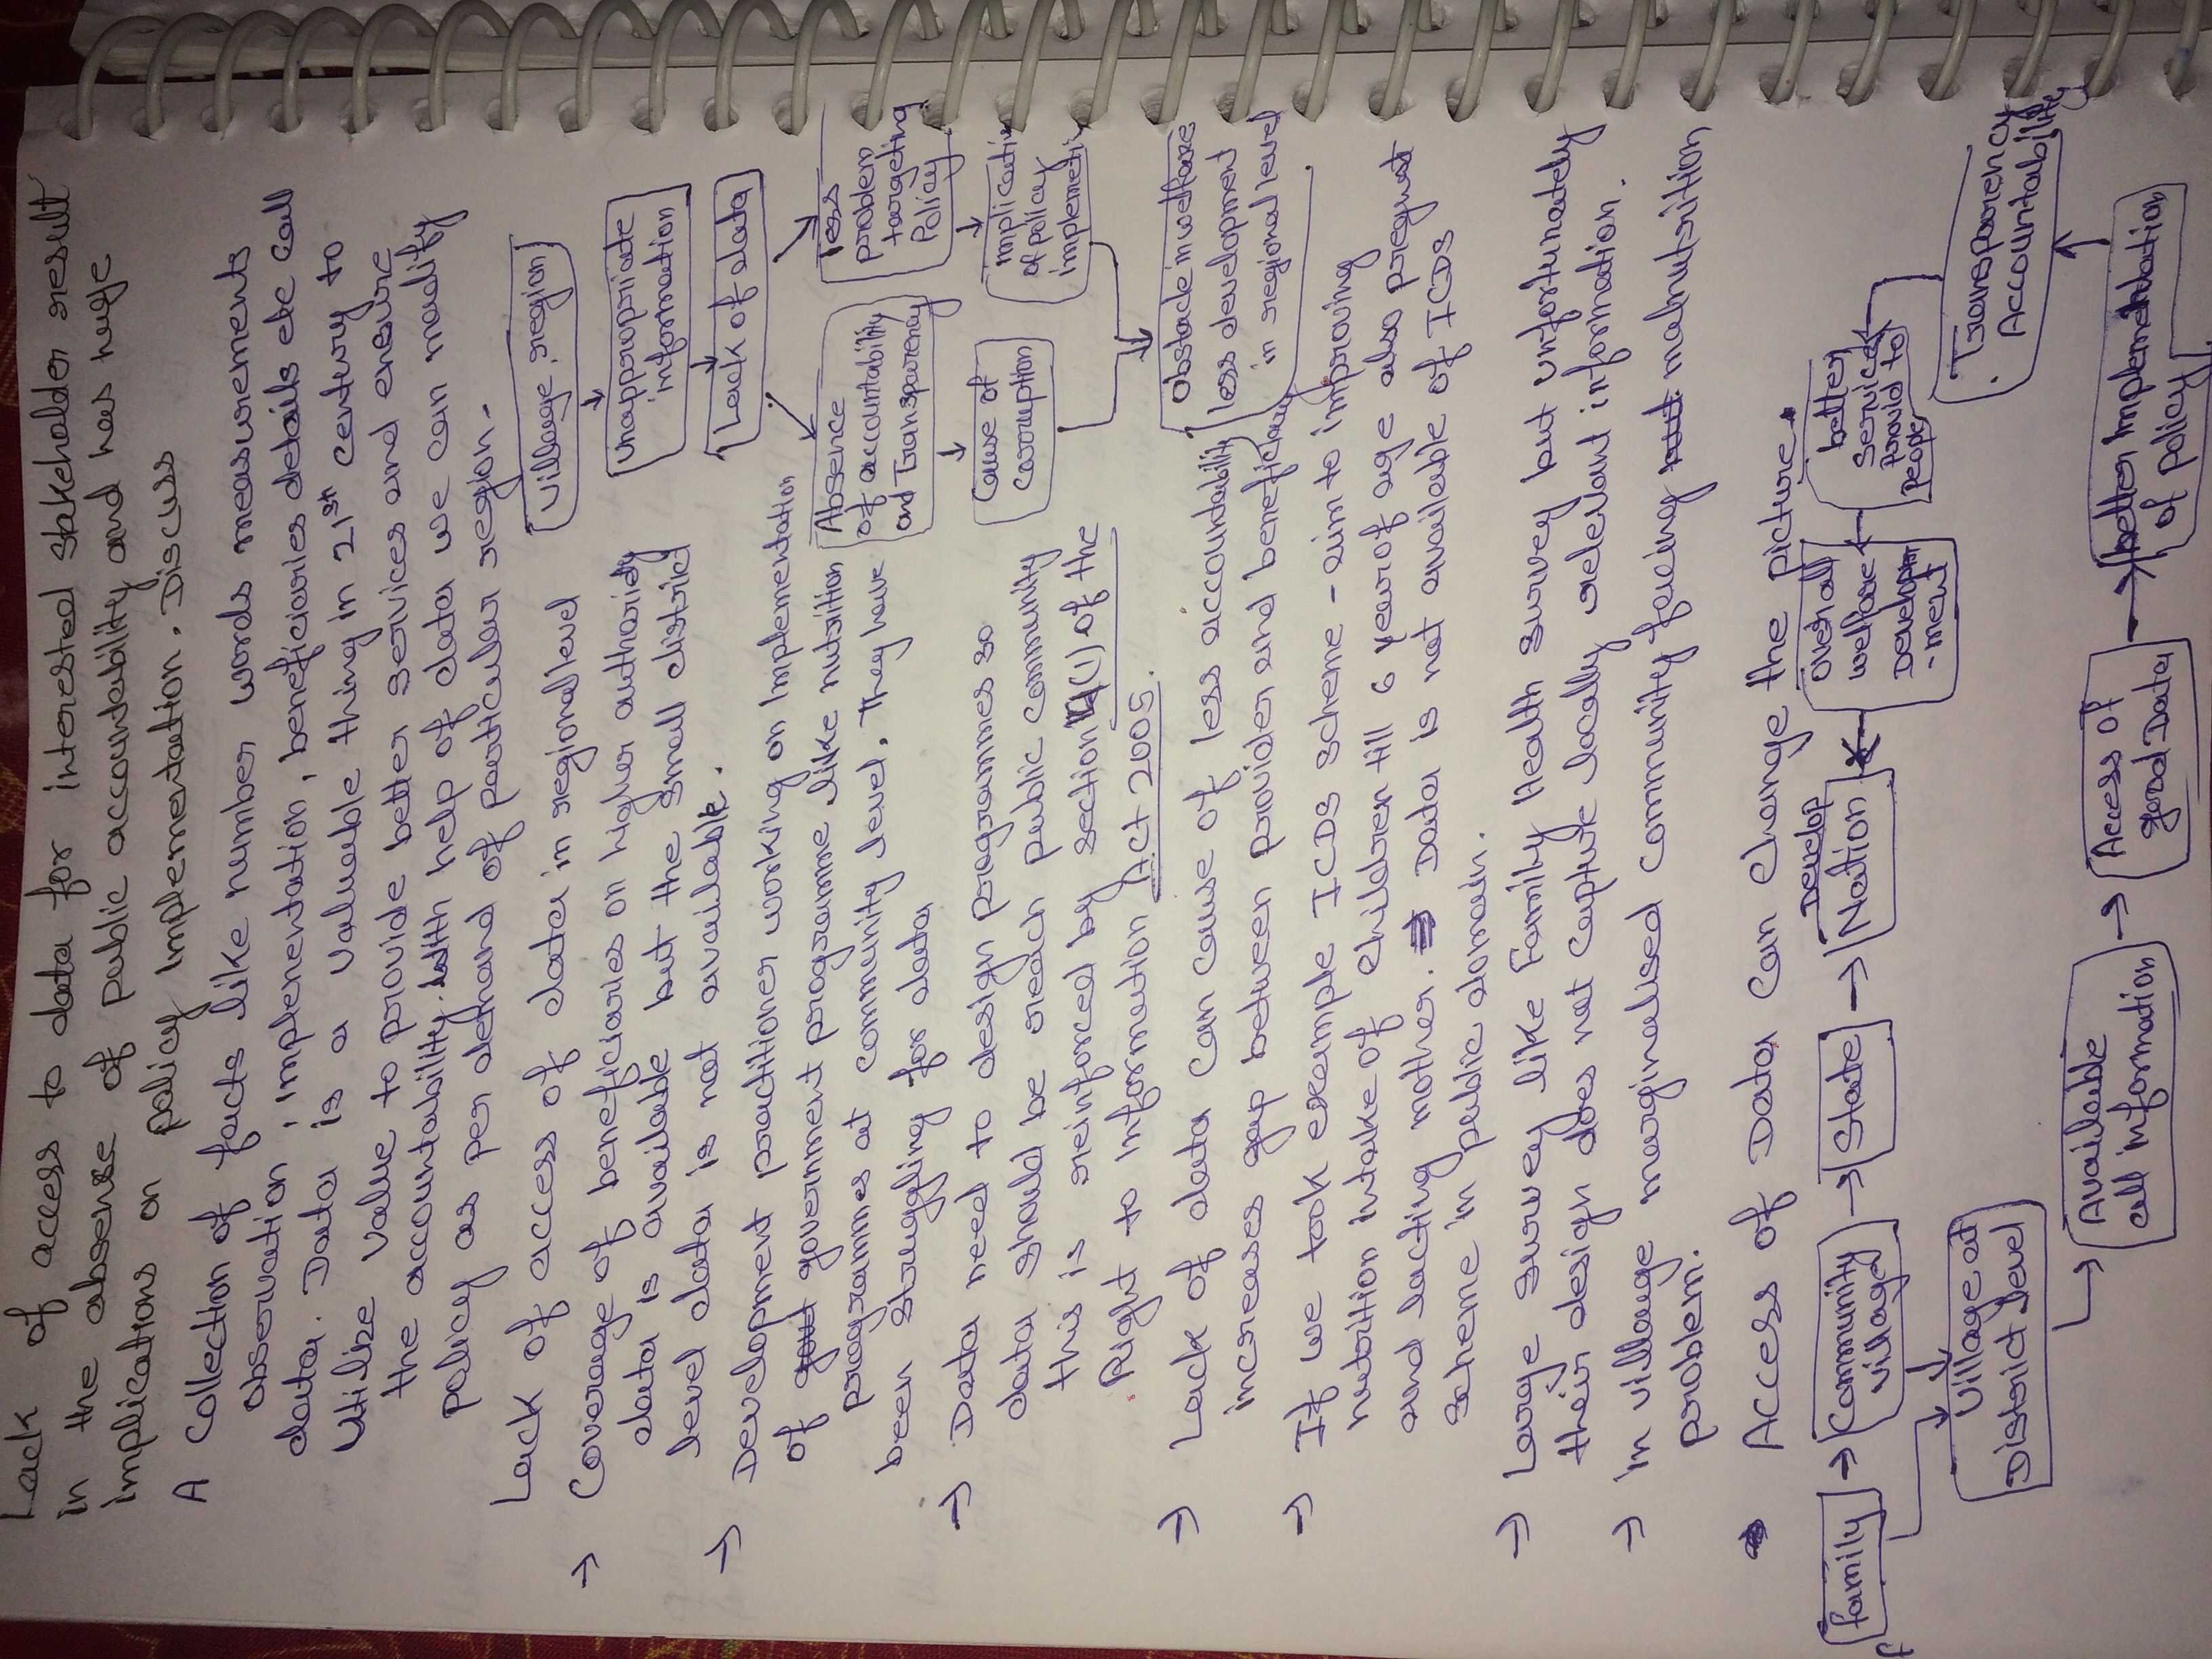 Lack of access to data for interested stakeholder result
in the absense of public accountability and has huge
implications on policy implementation. Discuss
A Collection of facts like number words measurements
observation, implementation, beneficiaries details etc call
data. Data is a valuable thing in 21st century to
utilize value to provide better services and ensure
the accountability. with help of data we can modify
policy as per demand of particular region.
Lack of access of data in regional level
→ Coverage of beneficiaries on higher authority
data is available but the small district
level data is not available.
→ Development practitioner working on implementation
of govt government programme like nutrition
programmes at community level. They have
been struggling for data
→ Data need to design programmes so
data should be reach public community
this is reinforced by section 4(1) of the
Right to information Act 2005.
Village, region
unappropriate
information
Lack of data
less
problem
targeting
Policy
implication
of policy
implemetin
Absence
of accountability
and Transparency
Cause of
corruption
Obstacle in welfare
less development
in regional level
→ Lack of data can cause of less accountability
increases gap between provider and beneficiary
→ If we took example ICDS scheme - aim to improving
nutrition intake of children till 6 year of age also pregnet
and lacting mother. Data is not available of ICDS
scheme in public domain.
→ Large survey like Family Health survey but unfortunately
their design does not capture locally relevant information.
→ in village marginalised community facing malnutrition
problem.
Access of Data can change the picture.
family → Community
village → State → Develop
Nation
overall
welfare
Developm
-ment
better
Service
provid to
people
Transparency
Accountability
village at
District level
Available
all information → Access of
good Data → better implementation
of policy